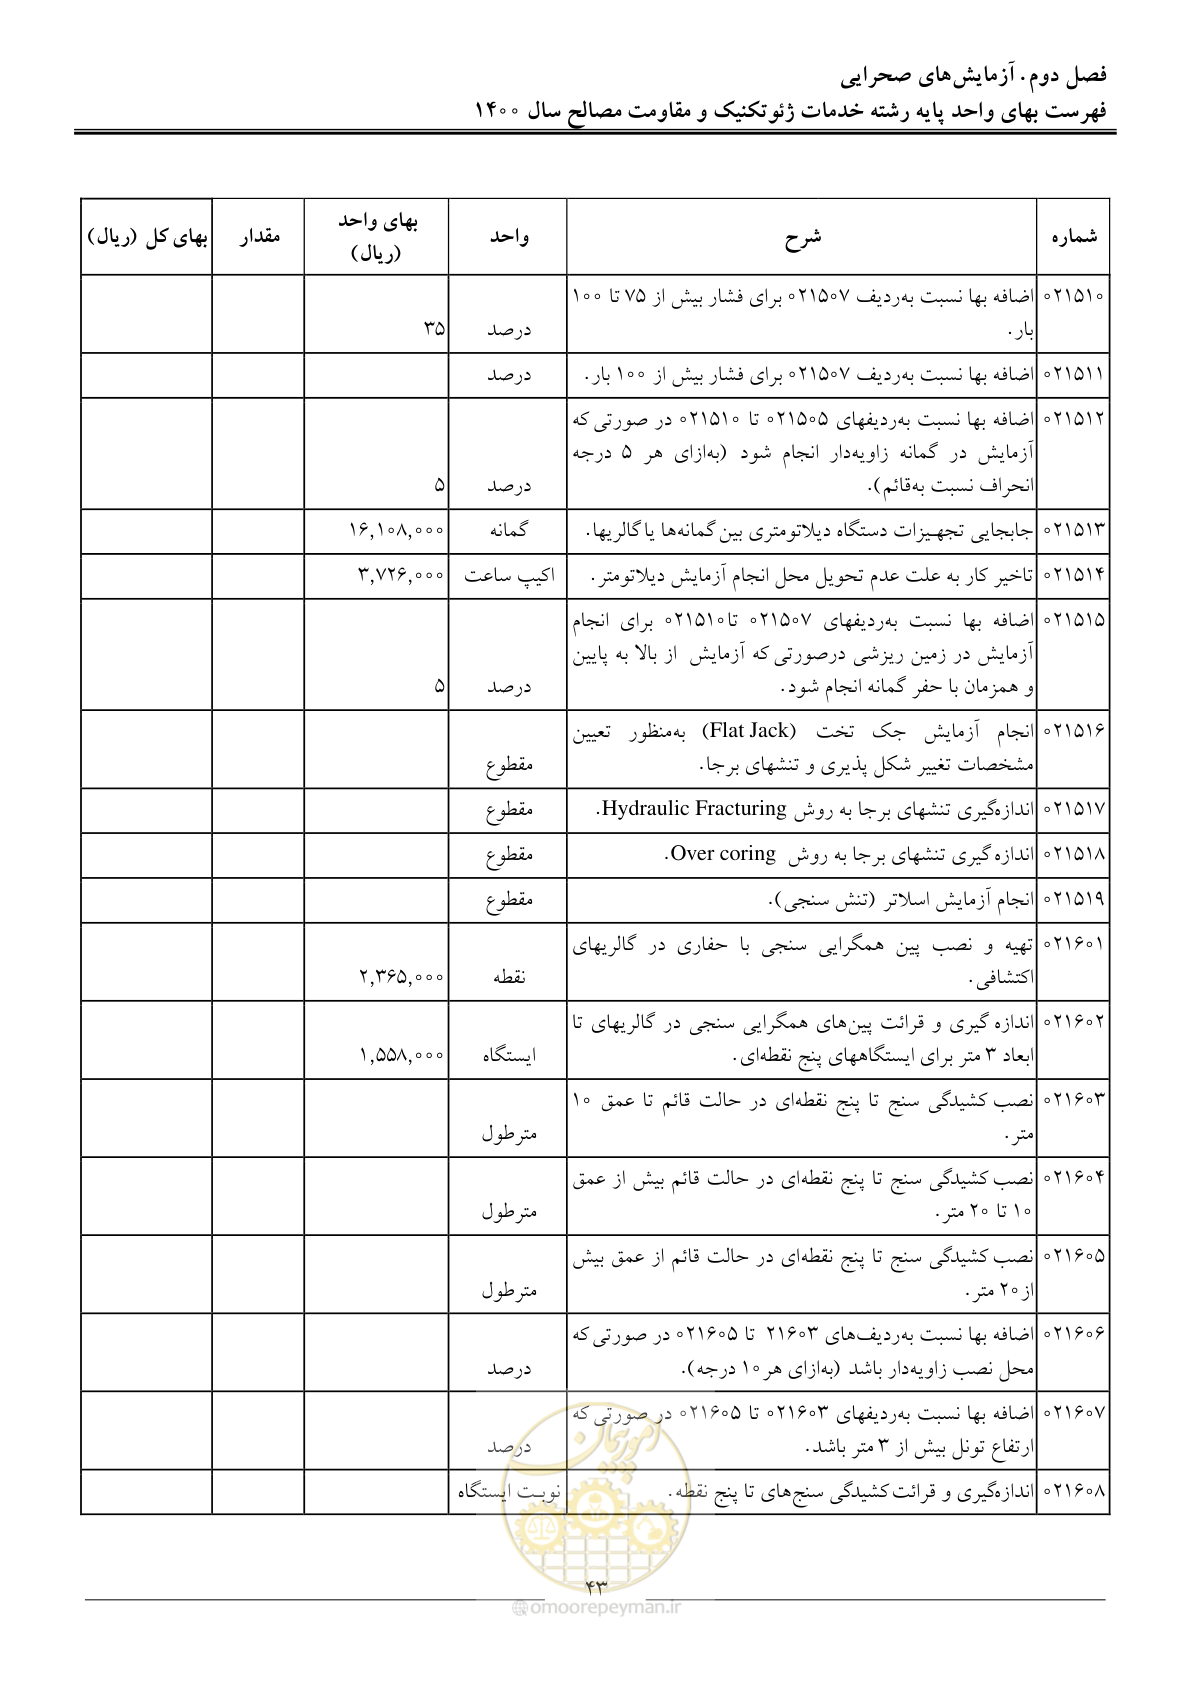 فصل دوم. آزمایش‌های صحرایی
فهرست بهای واحد پایه رشته خدمات ژئوتکنیک و مقاومت مصالح سال ۱۴۰۰
شماره شرح واحد بهای واحد (ریال) مقدار بهای کل (ریال)
۰۲۱۵۱۰ اضافه بها نسبت به‌ردیف ۰۲۱۵۰۷ برای فشار بیش از ۷۵ تا ۱۰۰
بار. درصد ۳۵
۰۲۱۵۱۱ اضافه بها نسبت به‌ردیف ۰۲۱۵۰۷ برای فشار بیش از ۱۰۰ بار. درصد
۰۲۱۵۱۲ اضافه بها نسبت به‌ردیفهای ۰۲۱۵۰۵ تا ۰۲۱۵۱۰ در صورتی که
آزمایش در گمانه زاویه‌دار انجام شود (به‌ازای هر ۵ درجه
انحراف نسبت به‌قائم). درصد ۵
۰۲۱۵۱۳ جابجایی تجهیزات دستگاه دیلاتومتری بین گمانه‌ها یا گالریها. گمانه ۱۶,۱۰۸,۰۰۰
۰۲۱۵۱۴ تاخیر کار به علت عدم تحویل محل انجام آزمایش دیلاتومتر. اکیپ ساعت ۳,۷۲۶,۰۰۰
۰۲۱۵۱۵ اضافه بها نسبت به‌ردیفهای ۰۲۱۵۰۷ تا ۰۲۱۵۱۰ برای انجام
آزمایش در زمین ریزشی درصورتی که آزمایش از بالا به پایین
و همزمان با حفر گمانه انجام شود. درصد ۵
۰۲۱۵۱۶ انجام آزمایش جک تخت (Flat Jack) به‌منظور تعیین
مشخصات تغییر شکل پذیری و تنشهای برجا. مقطوع
۰۲۱۵۱۷ اندازه‌گیری تنشهای برجا به روش Hydraulic Fracturing. مقطوع
۰۲۱۵۱۸ اندازه گیری تنشهای برجا به روش Over coring. مقطوع
۰۲۱۵۱۹ انجام آزمایش اسلاتر (تنش سنجی). مقطوع
۰۲۱۶۰۱ تهیه و نصب پین همگرایی سنجی با حفاری در گالریهای
اکتشافی. نقطه ۲,۳۶۵,۰۰۰
۰۲۱۶۰۲ اندازه گیری و قرائت پین‌های همگرایی سنجی در گالریهای تا
ابعاد ۳ متر برای ایستگاههای پنج نقطه‌ای. ایستگاه ۱,۵۵۸,۰۰۰
۰۲۱۶۰۳ نصب کشیدگی سنج تا پنج نقطه‌ای در حالت قائم تا عمق ۱۰
متر. مترطول
۰۲۱۶۰۴ نصب کشیدگی سنج تا پنج نقطه‌ای در حالت قائم بیش از عمق
۱۰ تا ۲۰ متر. مترطول
۰۲۱۶۰۵ نصب کشیدگی سنج تا پنج نقطه‌ای در حالت قائم از عمق بیش
از ۲۰ متر. مترطول
۰۲۱۶۰۶ اضافه بها نسبت به‌ردیف‌های ۲۱۶۰۳ تا ۰۲۱۶۰۵ در صورتی که
محل نصب زاویه‌دار باشد (به‌ازای هر ۱۰ درجه). درصد
۰۲۱۶۰۷ اضافه بها نسبت به‌ردیفهای ۰۲۱۶۰۳ تا ۰۲۱۶۰۵ در صورتی که
ارتفاع تونل بیش از ۳ متر باشد. درصد
۰۲۱۶۰۸ اندازه‌گیری و قرائت کشیدگی سنج‌های تا پنج نقطه. نوبت ایستگاه
امور پیمان
۴۳
omoorepeyman.ir